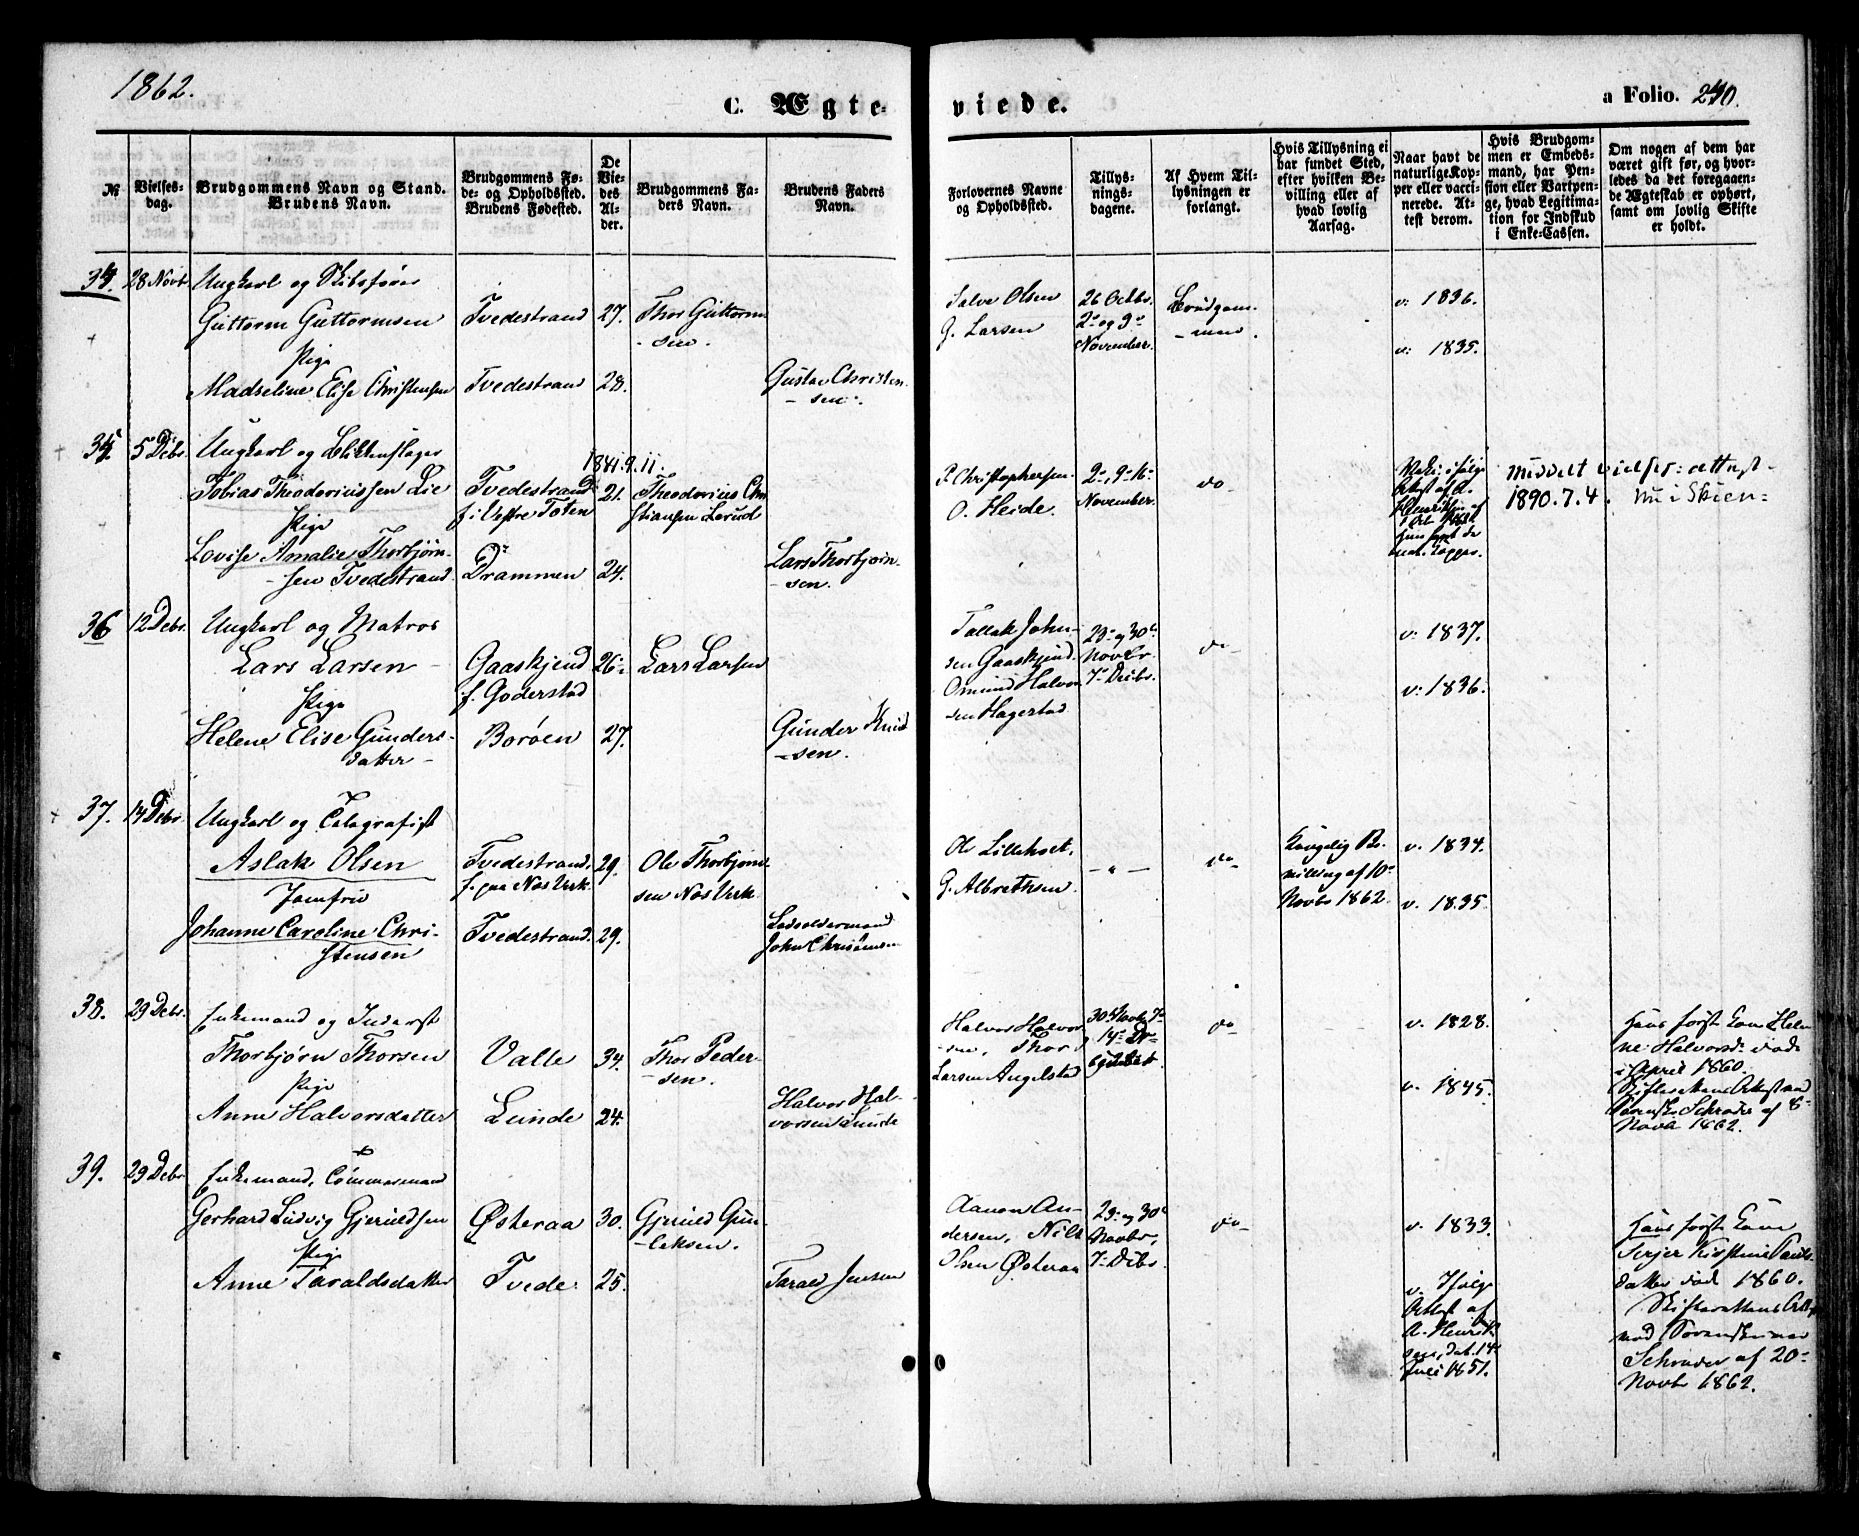 1862.
C. Ægteviede.
a Folio. 240.
№
Vielsesdag.
Brudgommens Navn og Stand.
Brudens Navn.
Brudgommens Føde- og Opholdssted.
Brudens Fødested.
De Viedes Alder.
Brudgommens Faders Navn.
Brudens Faders Navn.
Forlovernes Navne og Opholdssted.
Tillysningsdagene.
Af Hvem Tillysningen er forlangt.
Hvis Tillysning ei har fundet Sted, efter hvilken Bevilling eller af hvad lovlig Aarsag.
Naar havt de naturlige Kopper eller vaccinerede. Attest derom.
Hvis Brudgommen er Embedsmand, har Pension eller Vartpenge, hvad Legitimation for Indskud i Enke-Cassen.
Om nogen af dem har været gift før, og hvorledes da det foregaaende Ægteskab er ophørt, samt om lovlig Skifte er holdt.
34. 28 Novb. Ungkarl og Skibsfører
Guttorm Guttormsen Tvedestrand 27. Thor Guttormsen.
Pige
Madseline Elise Christensen Tvedestrand 28. Gustav Christensen.
Salve Olsen
G. Larsen
26 Octbr.
2den og 9de
November.
Brudgommen.
v: 1836.
v: 1835.
35. 5 Debr. Ungkarl og Blikkenslager
1841.9.11.
Tobias Theodoriussen Lie Tvedestrand 21. Theodorius Christiansen Lerud
Pige f. i Vestre Toten
Lovise Amalie Thorbjørnsen Tvedestrand Drammen 24. Lars Thorbjørnsen.
P. Christophersen
O. Heide.
2-, 9-16-
November.
do
Meddelt vielses: attest
1890.7.4. Nu i Skien
36 12 Debr. Ungkarl og Matros
Lars Larsen Gaaskjend 26 Lars Larsen
Pige f. Goderstad
Helene Elise Gundersdatter Borøen 27. Gunder Knudsen.
Tallak Johnsen Gaaskjend
Omund Halvorsen Hagestad
23- og 30-
Novbr.
7- Debr.
do
v: 1837.
v: 1836.
37. 14 Debr. Ungkarl og Telegrafist
Aslak Olsen Tvedestrand, 29. Ole Thorbjørnsen Næs Verk
Jomfru f. paa Næs Verk.
Johanne Caroline Christensen Tvedestrand. 29.
John
Ole Lillehoet,
G. Albrethsen.
- " -
do
Kongelig Bevilling af 10de
Novbr 1862.
v. 1834.
v. 1835.
38. 29 Debr. Enkemand og Inderst
Thorbjørn Thorsen Valle 34. Thor Pedersen.
Pige
Anne Halvorsdatter Lunde 24. Halvor Halvorsen Lunde
Halvor Halvorsen, Thor
Larsen Angelstad
30te Novbr. 7de
14de
do
v. 1828.
v. 1845.
Hans første Kone Helene Halvorsd. døde
i April 1860.
Skifterettens Attest ved
Sorensk. Schrøder af 8-
Novbr 1862.
39. 29 Debr. Enkemand, Tømmermand
Gerhard Ludvig Gjeruldsen Østeraa 30. Gjeruld Gunleksen.
Pige
Anne Taraldsdatter Tvede. 25. Tarald Jensen
Aanon Andersen, Nils
Olsen Østeraa
23- og 30-
Novbr,
7- Debr.
do
v. 1833.
v. Ifølge
Attest af
A. Henriksen, dat. 14
Juli 1851.
Hans første Kone
Terjer Kirstine
datter død 1860.
Skifterettens Attest
ved Sorenskriver
Schrøder af 20-
Novbr 1862.